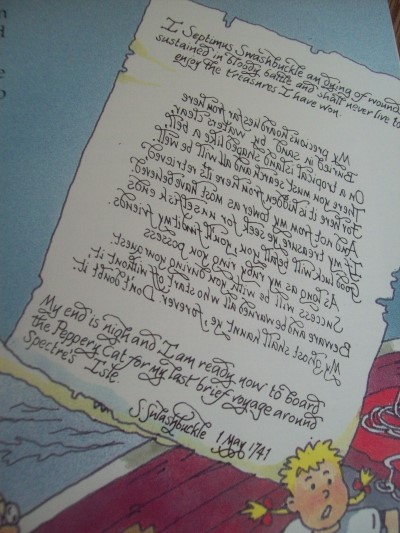 I Septimus Swashbuckle am dying of wounds
sustained in bloody battle and shall never live to
enjoy the treasures I have won.
My precious hoard lies far from here
Buried in sand by waters clear
On a tropical island shaped like a bell
There you must search and all will be well
For here it is hidden from here its retrieved
And not from my tower as most have believed
If my treasure ye seek for unselfish ends
Good luck will befall you, you'll find it my friends.
As long as my ruby ring you possess
Success will be with you during your quest
Beware and be warned all who start off without it:
My ghost shall haunt ye, forever. Don't doubt it.
My end is nigh and I am ready now to board
the Peppery Cat for my last brief voyage around
Spectre's Isle.
S Swashbuckle 1 May 1741